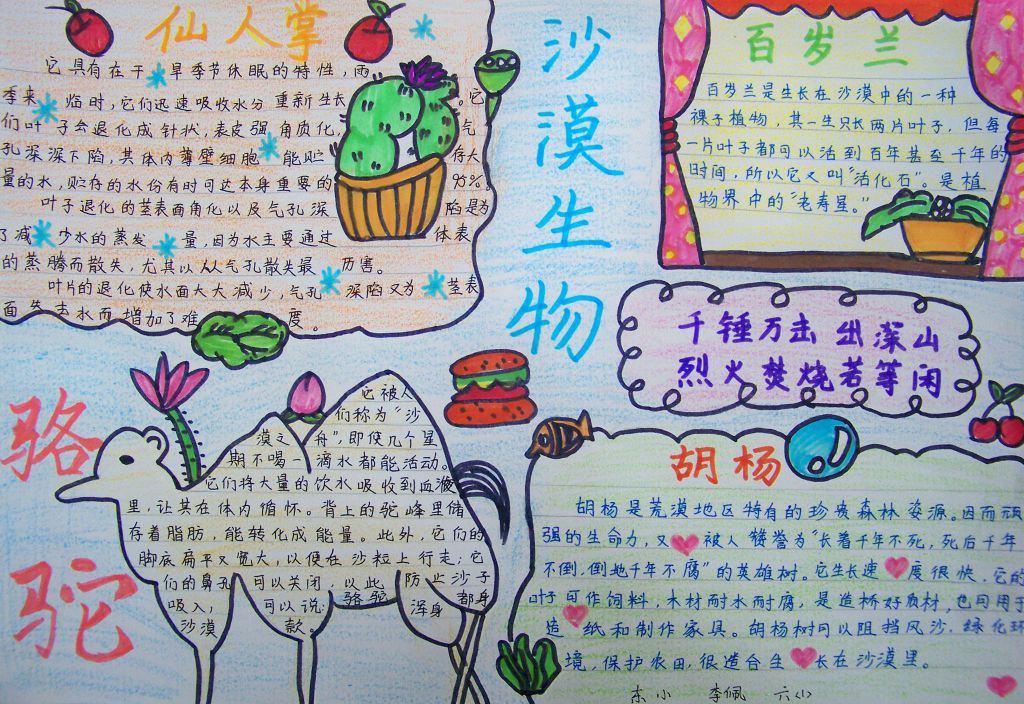 仙人掌
它具有在干旱季节休眠的特性,雨
季来临时,它们迅速吸收水分重新生长。它
们叶子会退化成针状,表皮强角质化,气
孔深深下陷,其体内薄壁细胞能贮存大
量的水,贮存的水份有时可达本身重要的95%。
叶子退化的茎表面角化以及气孔深陷是为
了减少水的蒸发量,因为水主要通过体表
的蒸腾而散失,尤其以从气孔散失最历害。
叶片的退化使水面大大减少,气孔深陷又为茎表
面失去水而增加了难度。
沙漠生物
百岁兰
百岁兰是生长在沙漠中的一种
裸子植物,其一生只长两片叶子,但每
一片叶子都可以活到百年甚至千年的
时间,所以它又叫“活化石”。是植
物界中的“老寿星。”
千锤万击出深山
烈火焚烧若等闲
骆驼
它被人
们称为“沙
漠之舟”,即使几个星
期不喝一滴水都能活动。
它们将大量的饮水吸收到血液
里,让其在体内循怀。背上的驼峰里储
存着脂肪,能转化成能量。此外,它们的
脚底扁平又宽大,以便在沙粒上行走;它
们的鼻孔可以关闭,以此防止沙子
吸入,可以说:骆驼浑身都身
沙漠款。
胡杨
胡杨是荒漠地区特有的珍贵森林资源。因而顽
强的生命力,又被人赞誉为“长着千年不死,死后千年
不倒,倒地千年不腐”的英雄树。它生长速度很快,它的
叶子可作饲料,木材耐水耐腐,是造桥好质材,也可用于
造纸和制作家具。胡杨树可以阻挡风沙,绿化环
境,保护农田,很适合生长在沙漠里。
李佩 六(1)